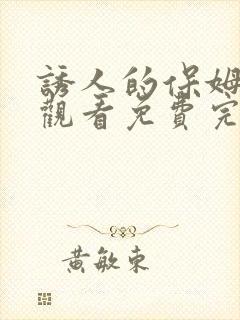 誘人的保姆
觀看免費完
黃敏東